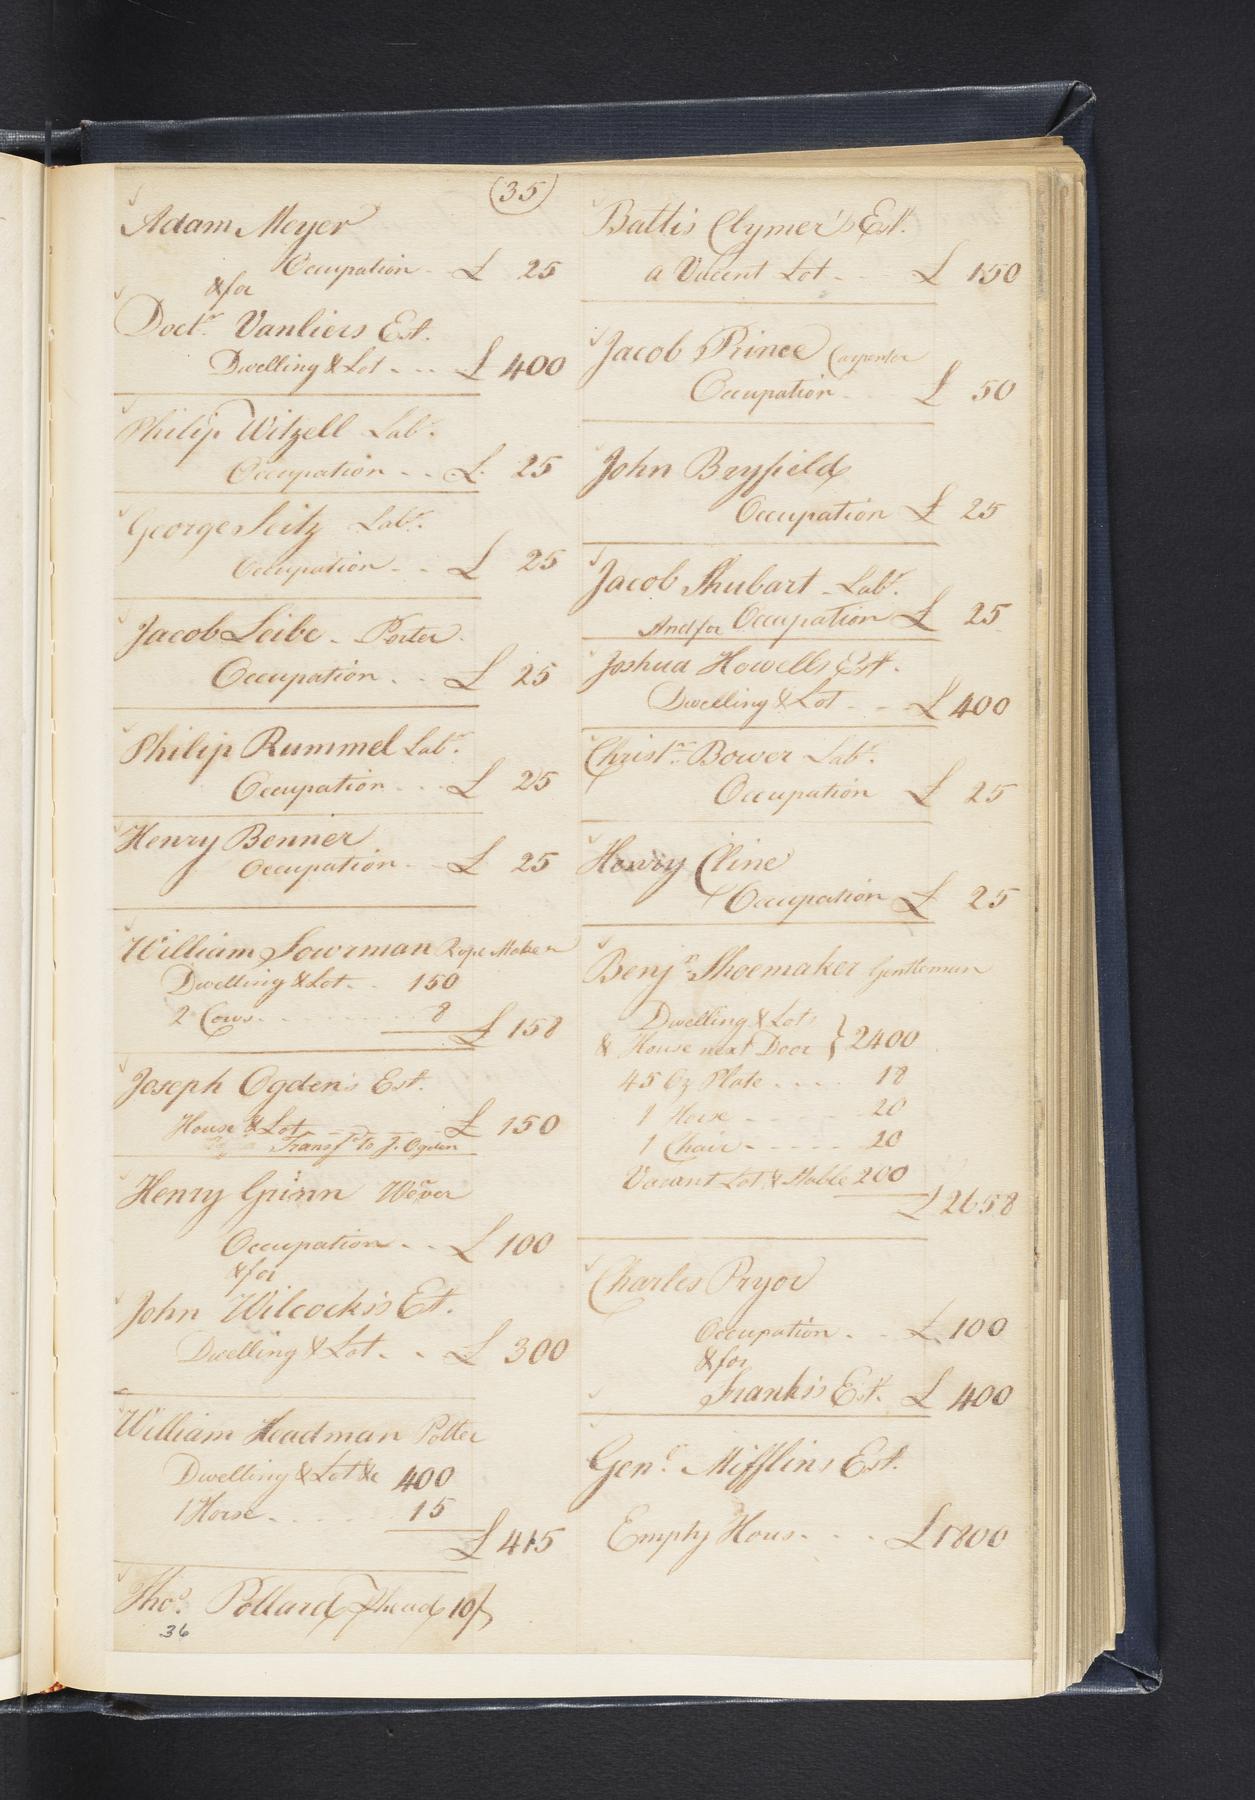 (35)
Adam Meyer
Occupation - £ 25
&for
Doctr. Vanliers Est.
Dwelling & Lot - - - £ 400
Philip Witzell Labr.
Occupation - - £ 25
George Seitz Labr.
Occupation - - £ 25
Jacob Leibe - Porter
Occupation - - £ 25
Philip Rummel Labr.
Occupation - - £ 25
Henry Benner
Occupation - - £ 25
William Sowrman Rope Maker
Dwelling & Lot - - 150
2 Cows - - - - - 8
£ 158
Joseph Ogden's Est.
House & Lot - - - - £ 150
Transfd to J. Ogden
Henry Grinn Wever
Occupation - - £ 100
&for
John Wilcocks's Est.
Dwelling & Lot - - £ 300
William Headman Potter
Dwelling & Lot &c 400
1 Horse - - - - 15
£ 415
Thos. Pollard Phead 10/
36
Battis Clymer's Est.
a Vacent Lot - - £ 150
Jacob Prince Carpenter
Occupation - £ 50
John Bryfield
Occupation £ 25
Jacob Shubart - Labr.
And for Occupation £ 25
Joshua Howells Est.
Dwelling & Lot - - £ 400
Christr. Bower Labr.
Occupation £ 25
Henry Cline
Occupation £ 25
Benjn. Shoemaker Gentleman
Dwelling & Lots
& House next Door } 2400
45 Oz Plate - - - - 18
1 Horse - - - - 20
1 Chair - - - - - 20
Vacant Lot & Stable 200
£ 2658
Charles Pryor
Occupation - - £ 100
&for
Franks's Est. £ 400
Genl. Mifflins Est.
Empty Hous - - - £ 1800